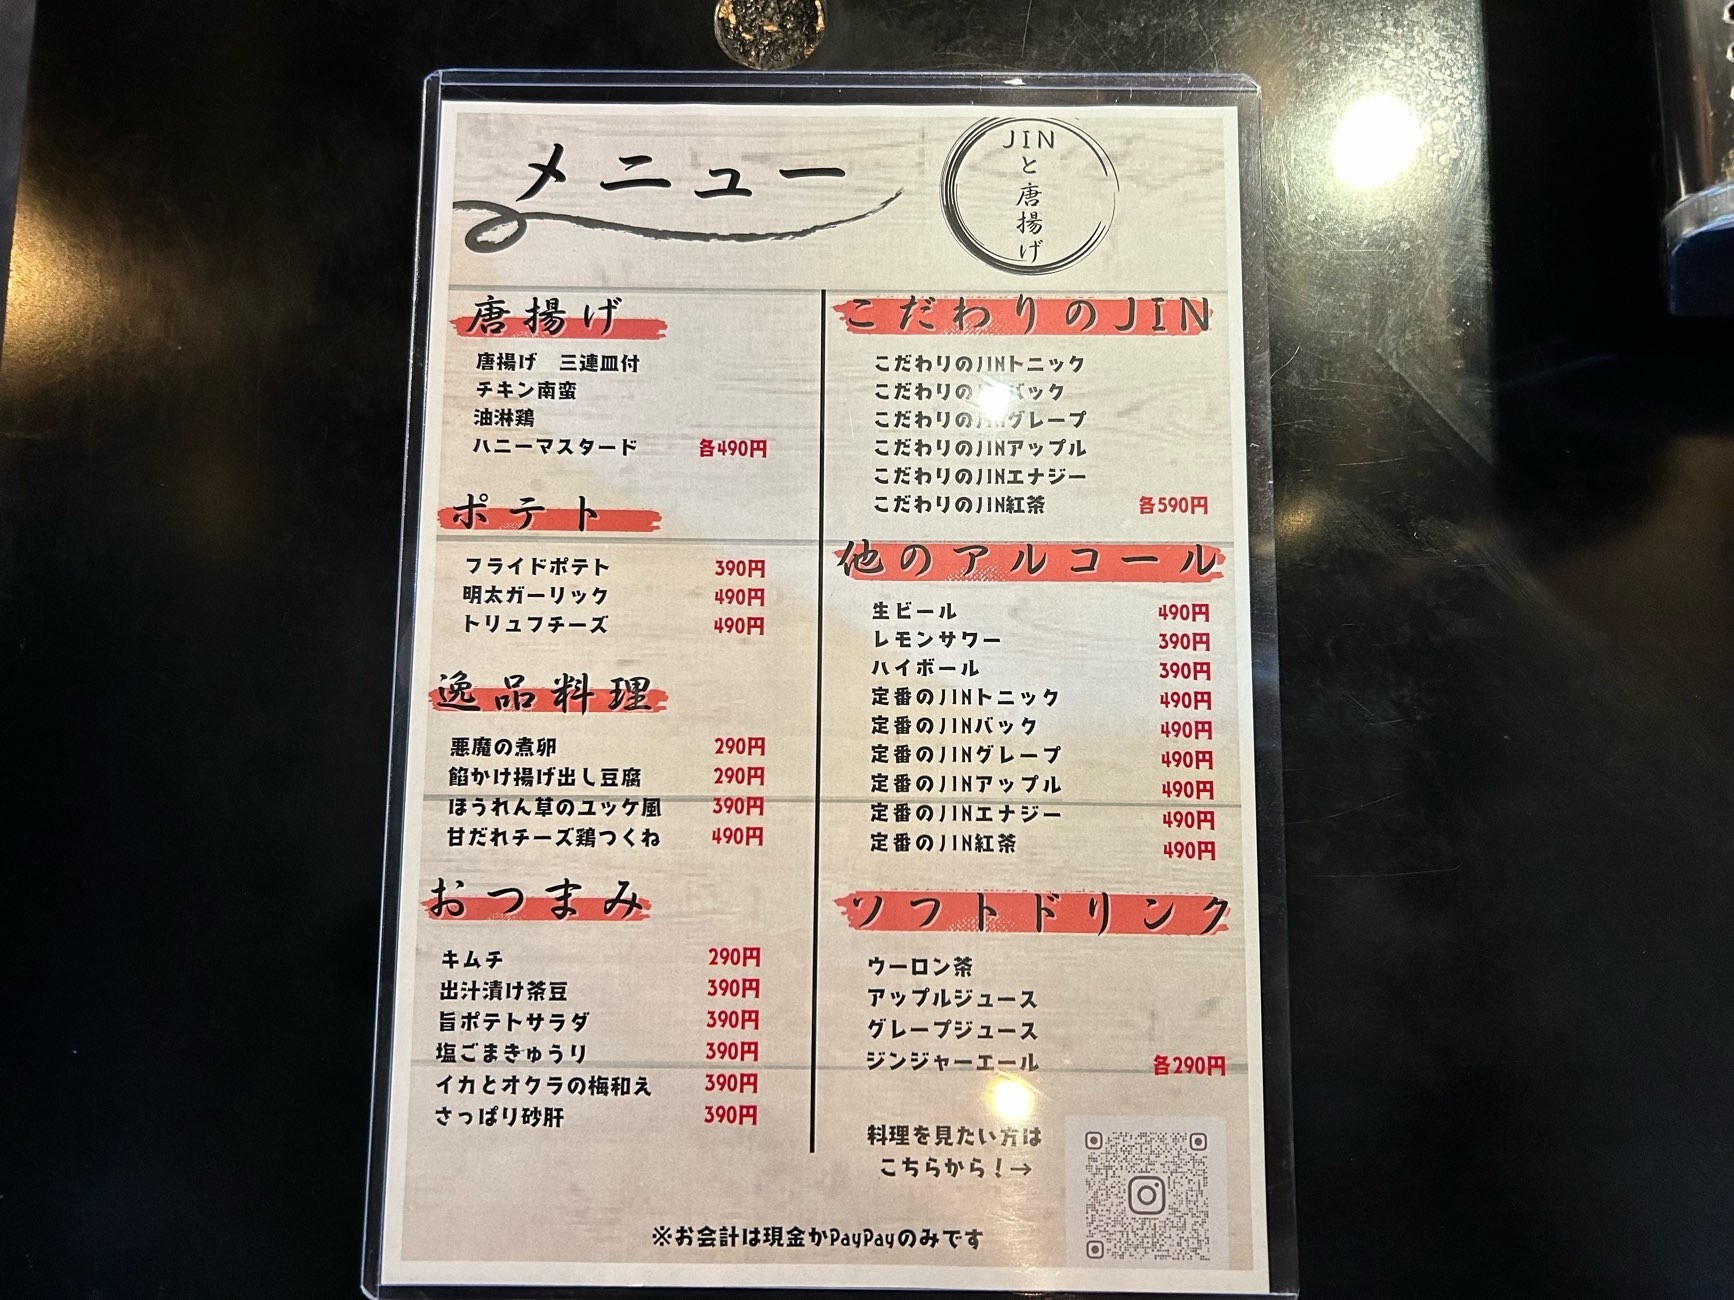 メニュー
JIN
と
唐
揚
げ
唐揚げ
唐揚げ 三連皿付
チキン南蛮
油淋鶏
ハニーマスタード 各490円
ポテト
フライドポテト 390円
明太ガーリック 490円
トリュフチーズ 490円
逸品料理
悪魔の煮卵 290円
餡かけ揚げ出し豆腐 290円
ほうれん草のユッケ風 390円
甘だれチーズ鶏つくね 490円
おつまみ
キムチ 290円
出汁漬け茶豆 390円
旨ポテトサラダ 390円
塩ごまきゅうり 390円
イカとオクラの梅和え 390円
さっぱり砂肝 390円
こだわりのJIN
こだわりのJINトニック
こだわりの バック
こだわりのJINグレープ
こだわりのJINアップル
こだわりのJINエナジー
こだわりのJIN紅茶 各590円
他のアルコール
生ビール 490円
レモンサワー 390円
ハイボール 390円
定番のJINトニック 490円
定番のJINバック 490円
定番のJINグレープ 490円
定番のJINアップル 490円
定番のJINエナジー 490円
定番のJIN紅茶 490円
ソフトドリンク
ウーロン茶
アップルジュース
グレープジュース
ジンジャーエール 各290円
料理を見たい方は
こちらから！→
※お会計は現金かPayPayのみです